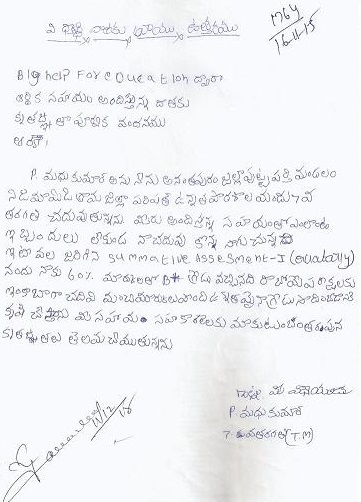 విద్యార్థి దాతకు వ్రాయు ఉత్తరము
M64
16-11-15
Big help For eDUcation ద్వారా
ఆర్థిక సహాయం అందిస్తున్న దాతకు
కృతజ్ఞతా పూర్వక వందనము
P. మధుకుమార్ అను నేను అనంతపురం జిల్లా పుట్టపర్తి మండలం
నిడిమామిడి గ్రామ జిల్లా పరిషత్ ఉన్నత పాఠశాల యందు 7వ
తరగతి చదువుతున్నాను మీరు అందిస్తున్న సహాయంతో ఎలాంటి
ఇబ్బందులు లేకుండ నా చదువు బాగా సాగుచున్నది
ఇటీవల జరిగిన summative assesment-I (
నందు నాకు 60% మార్కులతో B+ గ్రేడు వచ్చినది రాబోయే పరీక్షలకు
ఇంకా బాగా చదివి మంచి మార్కులు పొంది ఉన్నతమైన గ్రేడు సాధించడానికి
కృషి చేస్తాను మీ సహాయ సహకారాలకు మా కుటుంబం తరుపున
కృతజ్ఞతలు తెలియచేయుతున్నాను
ఇట్లు మీ విధేయుడు
P. మధుకుమార్
7వ తరగతి (T.M)